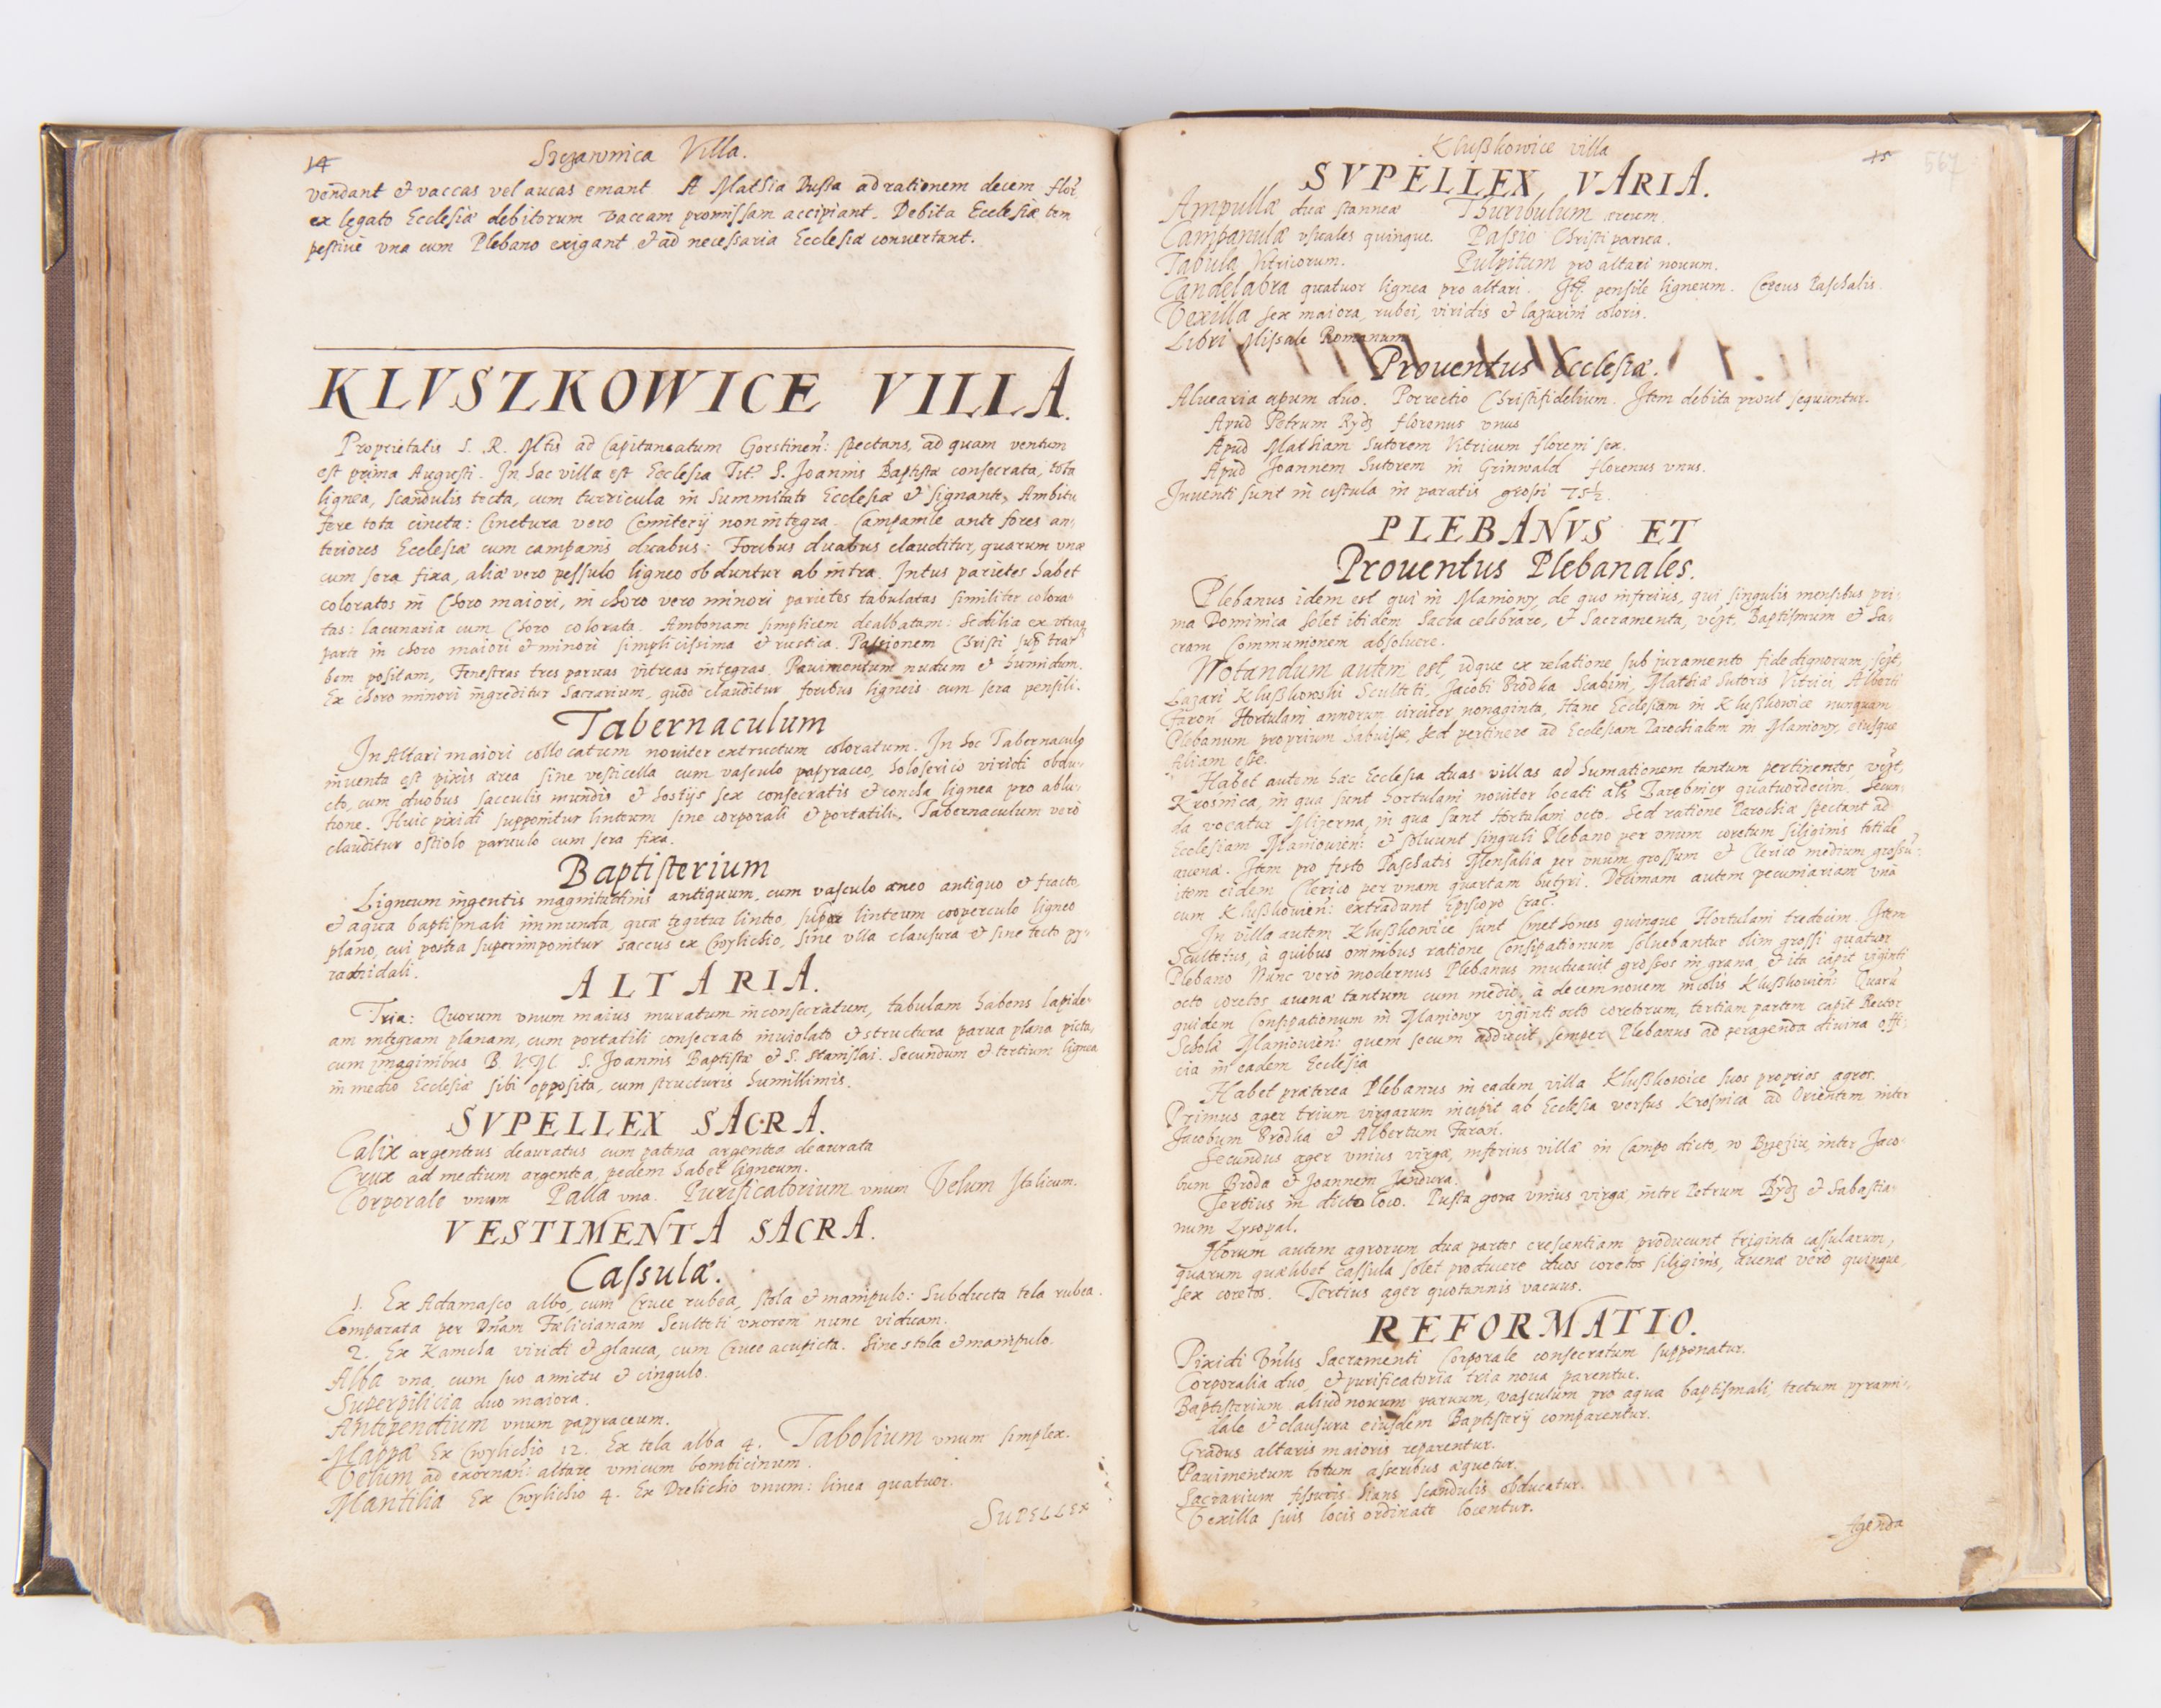 14
Szczawnica Villa.
vendant et vaccas vel aucas emant A Mathia Dusta ad rationem decem flor.
ex legato Ecclesiæ debitorum vaccam promissam accipiant. Debita Ecclesiæ tem
pestiue vna cum Plebano exigant et ad necessaria Ecclesiæ conuertant.
KLVSZKOWICE VILLA.
Proprietatis S. R. Mtis ad Capitaneatum Gorstinen: spectans, ad quam ventum
est prima Augusti. In hac villa est Ecclesia Tit. S. Joannis Baptistæ consecrata, tota
lignea, scandulis tecta, cum turricula in summitate Ecclesiæ et signante, Ambitu
fere tota cincta: Cinctura vero Cæmiterij non integra. Campanile ante fores an,
teriores Ecclesiæ cum campanis duabus: Foribus duabus clauditur, quarum vnæ
cum sera fixa, aliæ vero pessulo ligneo obduntur ab intra. Intus parietes habet
coloratos in Choro maiori, in choro vero minori parietes tabulatas similiter colora-
tas: lacunaria cum Choro colorata. Ambonam simplicem dealbatam: Sedilia ex vtraq
parte in choro maiori et minori simplicissima et rustica. Passionem Christi sub tra-
bem positam, Fenestras tres paruas vitreas integras. Pauimentum nudum et humidum.
Ex choro minori ingreditur Sacrarium, quod clauditur foribus ligneis cum sera pensili.
Tabernaculum
In Altari maiori collocatum nouiter extructum coloratum. In hoc Tabernaculo
inuenta est pixis ærea sine vesticella cum vasculo papyraceo, holoserico viridi obdu-
cto, cum duobus sacculis mundis et hostijs sex consecratis et concha lignea pro ablu-
tione. Huic pixidi supponitur linteum sine corporali et portatili, Tabernaculum verò
clauditur ostiolo paruulo cum sera fixa.
Baptisterium
Ligneum ingentis magnitudinis antiquum, cum vasculo æneo antiquo et fracto,
et aqua baptismali immunda, quæ tegitur linteo, super linteum cooperculo ligneo
plano, cui postea superimponitur saccus ex Cwylichio, sine vlla clausura et sine tecto py-
ramidali.
ALTARIA.
Tria: Quorum vnum maius muratum inconsecratum, tabulam habens lapide-
am integram planam, cum portatili consecrato inuiolato et structura parua plana picta,
cum imaginibus B. V. M. S. Joannis Baptistæ et S. Stanislai. Secundum et tertium lignea
in medio Ecclesiæ sibi opposita, cum structuris humillimis.
SVPELLEX SACRA.
Calix argenteus deauratus cum patena argentea deaurata
Crux ad medium argentea, pedem habet ligneum.
Corporale vnum Palla vna. Purificatorium vnum Velum Italicum.
VESTIMENTA SACRA.
Cassulæ.
1. Ex Adamasco albo, cum Cruce rubea, stola et manipulo: Subducta tela rubea.
Comparata per Dnam Fælicianam Sculteti vxorem nunc viduam.
2. Ex Kamcha viridi et glauca, cum Cruce acupicta. Sine stola et manipulo.
Alba vna, cum suo amictu et cingulo.
Superpilicia duo maiora.
Antependium vnum papyraceum.
Mappæ Ex Cwylichio 12. Ex tela alba 4. Tabolium vnum simplex.
Velum ad exornan: altare vnicum bombicinum.
Mantilia Ex Cwylichio 4. Ex Drelichio vnum: linea quatuor.
SUPELLEX
Klußkowice villa
15
567
SVPELLEX VARIA.
Ampullæ duæ stanneæ Thuribulum æreum.
Campanulæ vsuales quinque. Passio Christi parua.
Tabula Vitricorum. Pulpitum pro altari nouum.
Candelabra quatuor lignea pro altari. It. pensile ligneum. Cereus Paschalis.
Vexilla sex maiora, rubei, viridis et lazurini coloris.
Libri Missale Romanum
Prouentus Ecclesiæ.
Aluearia apum duo. Porrectio Christifidelium. Item debita prout sequuntur.
Apud Petrum Rydz florenus vnus
Apud Mathiam Sutorem Vitricum floreni sex.
Apud Joannem Sutorem in Grinwald florenus vnus.
Inuenti sunt in cistula in paratis grossi 75½.
PLEBANVS ET
Prouentus Plebanales.
Plebanus idem est qui in Maniowy, de quo inferius, qui singulis mensibus pri-
ma Dominica solet ibidem Sacra celebrare, et Sacramenta, vcpt. Baptismum et Sa-
cram Communionem absoluere.
Notandum autem est, idque ex relatione sub juramento fide dignorum, scpt,
Lazari Klußkowski Sculteti, Jacobi Brodka Scabini, Mathiæ Sutoris Vitrici, Alberti
Faron Hortulani annorum circiter nonaginta, Hanc Ecclesiam in Klußkowice nunquam
Plebanum proprium habuisse, sed pertinere ad Ecclesiam Parochialem in Maniowy, eiusque
filiam esse.
Habet autem hæc Ecclesia duas villas ad humationem tantum pertinentes, vcpt,
Krosnica, in qua sunt hortulani nouiter locati als Zarębnicy quatuordecim. Secun-
da vocatur Mizerna, in qua sunt Hortulani octo. Sed ratione Parochiæ spectant ad
Ecclesiam Maniouien: et soluunt singuli Plebano per vnum coretum siliginis totidē
auenæ. Item pro festo Paschatis Mensalia per vnum grossum et Clerico medium grossū:
item eidem Clerico per vnam quartam butyri. Decimam autem pecuniariam vnà
cum Klußkouien: extradunt Episcopo Crac.
In villa autem Klußkowice sunt Cmethones quinque Hortulani tredecim. Item
Scultetus, à quibus omnibus ratione Consipationum soluebantur olim grossi quatuor
Plebano Nunc verò modernus Plebanus mutuauit grossos in grana, et ita capit viginti
octo coretos auenæ tantum cum medio, à decemnouem incolis Klußkouien: Quarū
quidem Consipationum in Maniowy viginti octo coretorum, tertiam partem capit Rector
Scholæ Maniouien: quem secum adducit semper Plebanus ad peragenda diuina offi-
cia in eadem Ecclesia
Habet præterea Plebanus in eadem villa Klußkowice suos proprios agros.
Primus ager trium virgarum incipit ab Ecclesia versus Krosnica ad Orientem inter
Jacobum Brodka et Albertum Faron.
Secundus ager vnius virgæ, inferius villæ in Campo dicto, w Brzeziu, inter Jaco-
bum Broda et Joannem Jandura.
Tertius in dicto loco. Pusta gora vnius virgæ inter Petrum Rydz et Sabastia-
num Lysopal.
Horum autem agrorum duæ partes crescentiam producunt triginta cassularum,
quarum quælibet cassula solet producere duos coretos siliginis, auenæ verò quinque,
sex coretos. Tertius ager quotannis vacuus.
REFORMATIO.
Pixidi Vnlis Sacramenti Corporale consecratum supponatur.
Corporalia duo, et purificatoria tria noua parentur.
Baptisterium aliud nouum paruum, vasculum pro aqua baptismali, tectum pyrami-
dale et clausura eiusdem Baptisterij comparentur.
Gradus altaris maioris reparentur.
Pauimentum totum asseribus æquetur.
Sacrarium fissuris hians scandulis obducatur.
Vexilla suis locis ordinate locentur.
Agenda